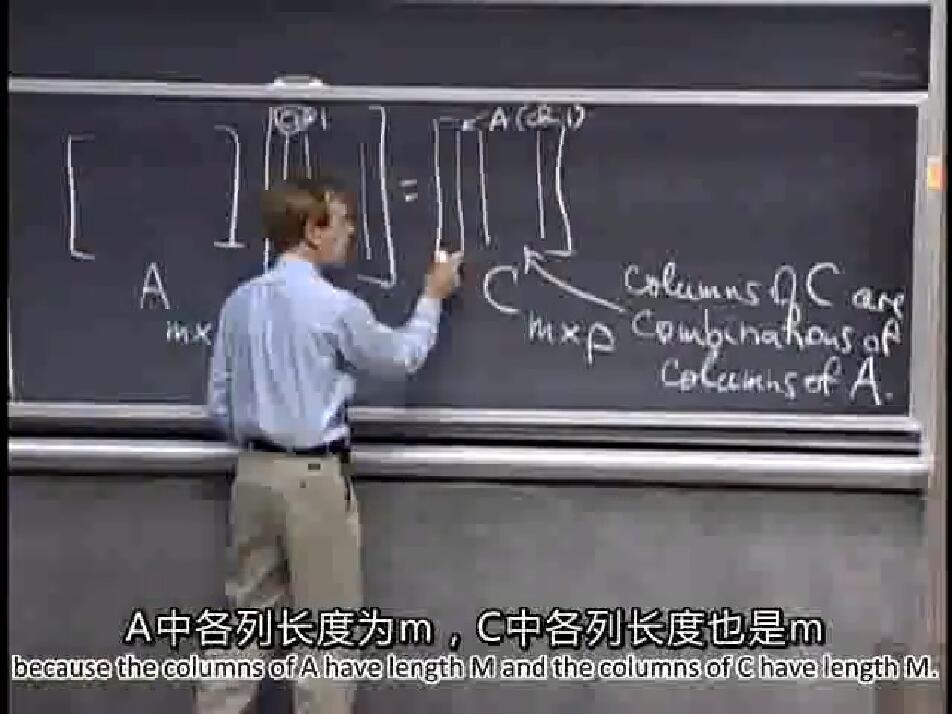 A (col 1)
=
A
m x
C
m x p
columns of C are
combinations of
columns of A.
A中各列长度为m，C中各列长度也是m
because the columns of A have length M and the columns of C have length M.